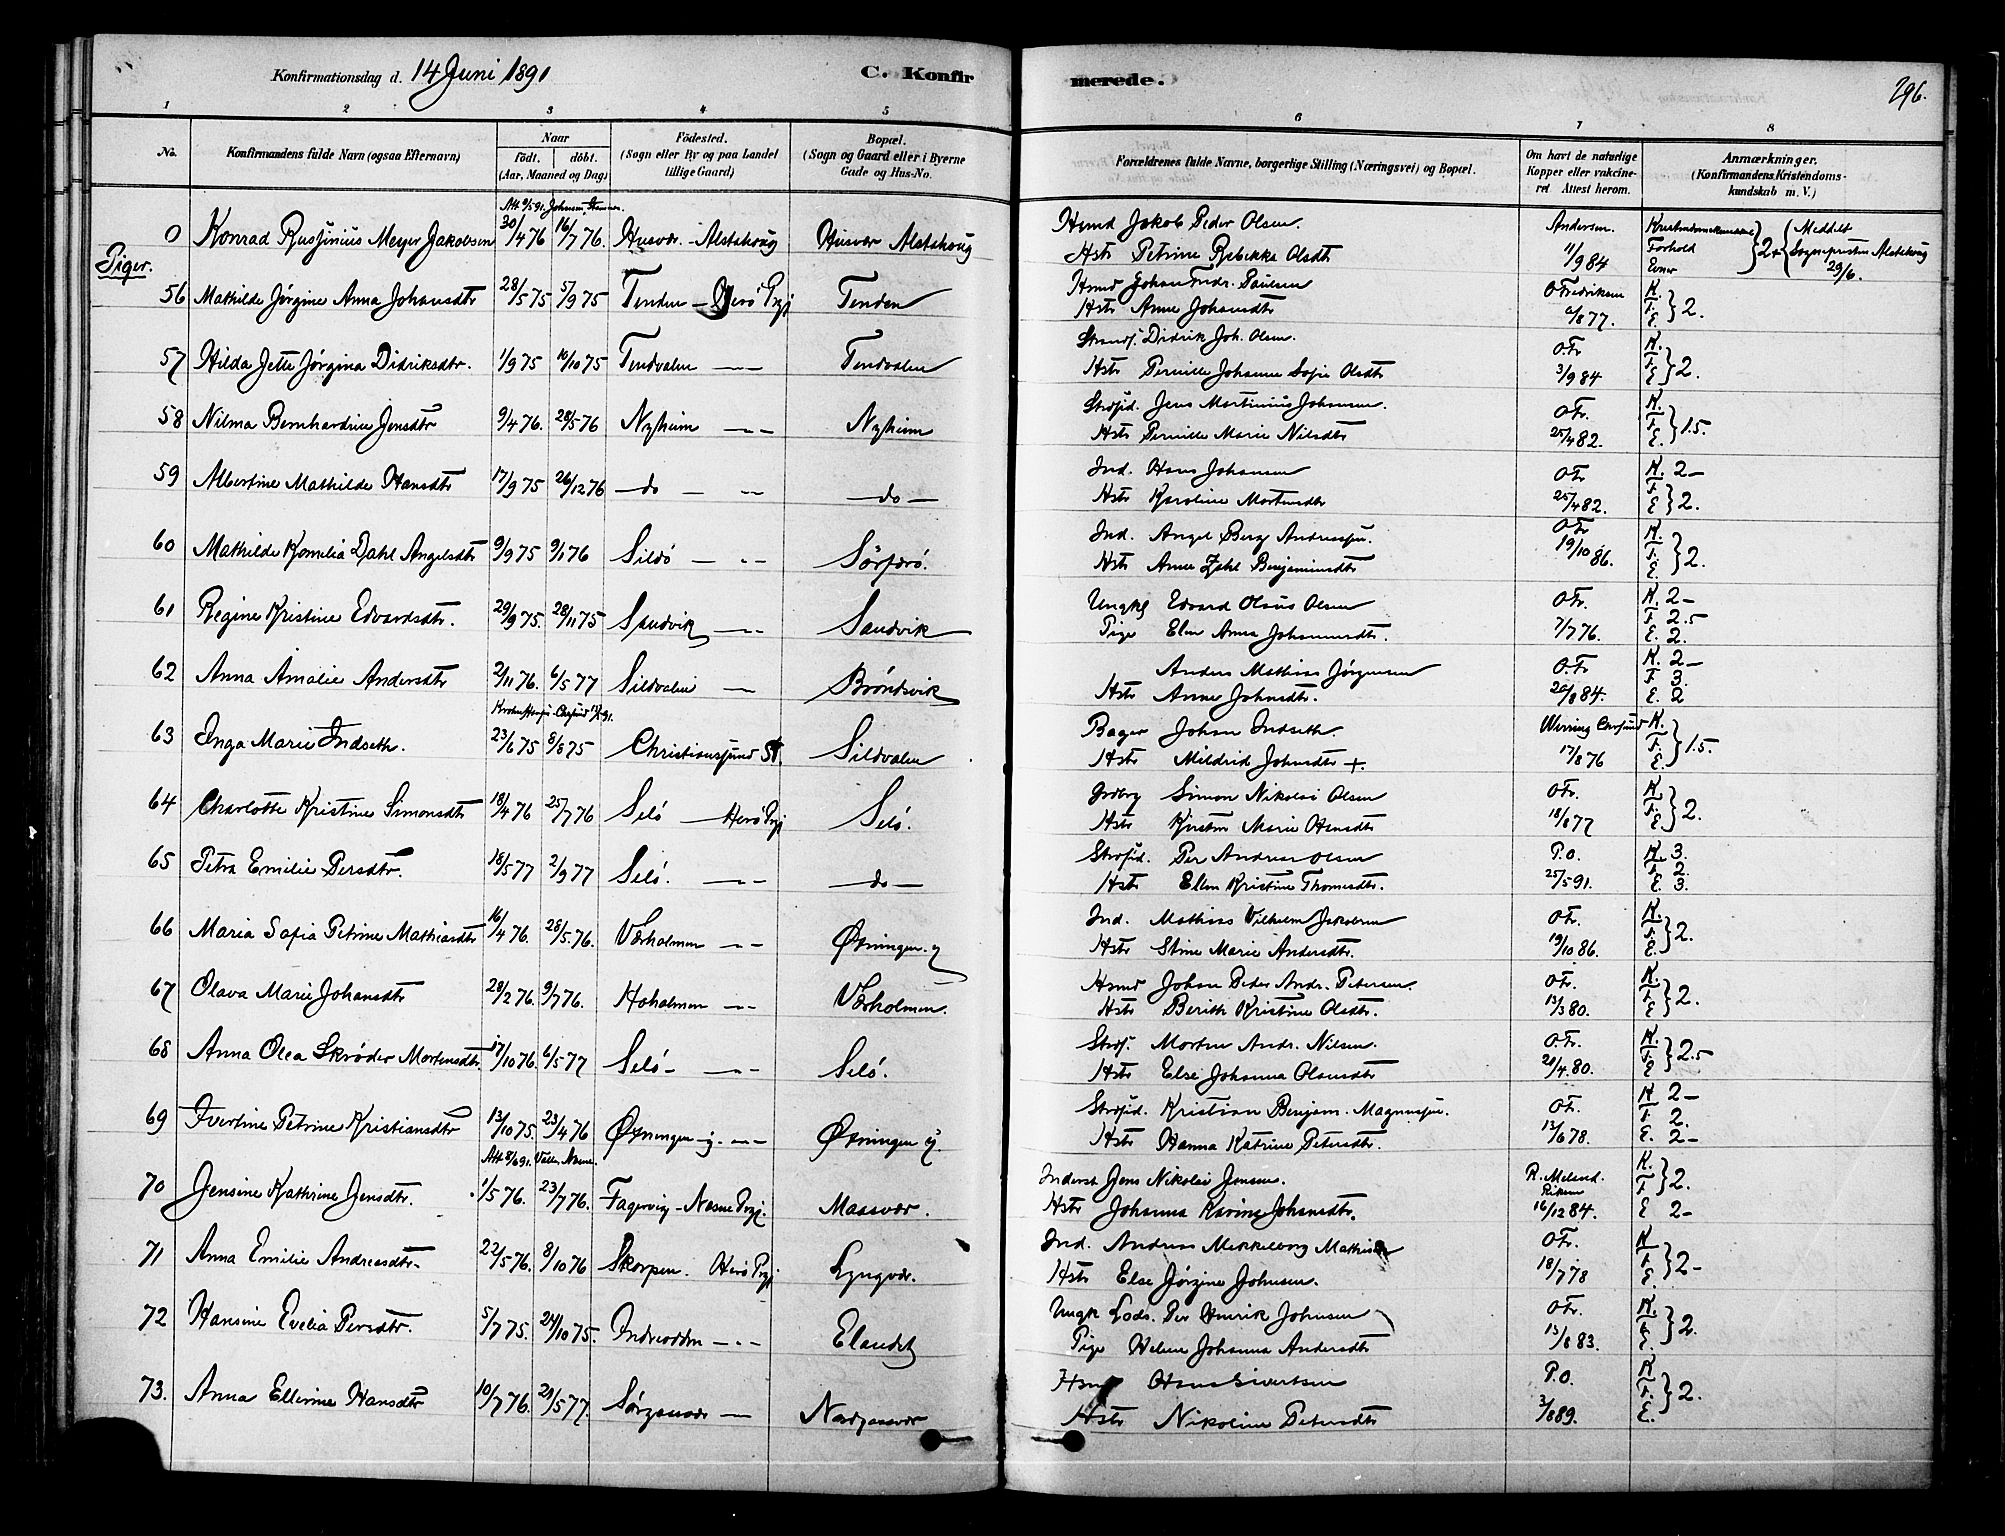 Konfirmationsdag d. 14 Juni 1891
C. Konfirmerede.
296.
1 2 3 4 5 6 7 8
No.
Konfirmandens fulde Navn (ogsaa Efternavn)
Naar
födt. döbt.
(Aar, Maaned og Dag)
Födested.
(Sogn eller By og paa Landet
tillige Gaard)
Bopæl.
(Sogn og Gaard eller i Byerne
Gade og Hus-No.
Forældrenes fulde Navne, borgerlige Stilling (Næringsvei) og Bopæl.
Om havt de naturlige
Kopper eller vakcineret.
Attest herom.
Anmærkninger.
(Konfirmandens Kristendomskundskab
m. V.)
0 Konrad Meyer Jakobsen 30/4 76 16/7 76. Husvær - Alstahoug Husvær Alstahoug
Hsmd Jakob Peder Olsen. Andersen.
Hstr Petrine Rebekka Olsdtr 11/9 84 Forhold Evner } 2+ { Meddelt Sognepresten Alstahoug 29/6.
Piger.
56 Mathilde Jørgine Anna Johansdtr 28/5 75 5/9 75 Tenden - Herö Pgj Tenden
Hsmd Johan Fredr. Paulsen O Fredriksen K. F. E. } 2.
Hstr Anne Johansdtr 8 77.
57 Hilda Jette Jørgina Didriksdtr. 1/9 75 10/10 75 Tendvalen - " - Tendvalen
Strandf. Didrik Joh. Olsen. O.Fr K. F. E. } 2.
Hstr Pernille Johanne Sofie Olsdtr 3/9 84
58 Nilma Bernhardine Jensdtr 9/4 76. 28/5 76 Nyheim - " - Nyheim
Strafsid. Jens Martinius Johansen. O Fr. K. F. E. } 1.5.
Hstr Pernille Marie Nilsdtr 25/4 82.
59 Albertine Mathilde Hansdtr 17/9 75 26/12 76 - do - " - - do -
Ind. Hans Johansen O Fr K. 2- F. E } 2.
Hstr Karoline Mortensdtr 25/4 82.
60 Mathilde Kornelia Dahl Angelsdtr 9/9 75 9/1 76 Sildö - " - Sörherö.
Ind. Angel Berg Andreassen. O Fr K. F. E. } 2.
Hstr Anne Zahl Benjaminsdtr 19/10 86.
61 Regine Kristine Edvardsdtr. 29/9 75. 28/11 75 Sandvik - " - Sandvik
Ungkl Edvard Olaus Olsen O Fr. K. 2- F. 2.5 E. 2.
Pige Elen Anna Johannesdtr. 7/7 76.
62 Anna Amalie Andersdtr 2/11 76. 6/5 77 Sildvalen - Bröndsvik
Anders Mathias Jörgensen O.Fr K. 2- F 3. E. 2
Hstr Anne Johnsdtr. 20/8 84.
63 Inga Marie Indseth. 23/6 75 8/8 75 Christiansund St. Sildvalen
Bager Johan Indseth. Werring Chrsund K. F. E. } 1.5.
Hstr Mildrid Johnsdtr +. 17/8 76
64 Charlotte Kristine Simonsdtr 18/4 76 25/7 76 Selö - Herö Pgj Selö.
Jordbrg Simon Nikolai Olsen O Fr. K. F. E. } 2.
Hstr Kirsten Marie Hansdtr 18/8 77
65 Petra Emilie Persdtr. 18/5 77 2/9 77 Selö. - " - - do -
Strafsid. Per Andreas Olsen P.O. K. 3. F. 2. E. 3.
Hstr Ellen Kristine Thomesdtr. 25/5 91.
66 Maria Sofia Petrine Mathiasdtr 16/4 76. 28/5. 76. Værholmen - " - Øxningen y
Ind. Mathias Vilhelm Jakobsen O Fr. K. F. E. } 2.
Hstr Stine Marie Andersdtr. 19/10 86.
67 Olava Marie Johansdtr 28/2 76. 9/7 76. Hoholmen - " - Værholmen.
Hsmd Johan Peder Andr. Petersen. O Fr. K. F. E } 2.
Hstr Berith Kristine Olsdtr. 13/3 80.
68 Anna Olea Skröder Mortensdtr. 17/10 76. 6/5 77 Selö - " - Selö.
Strf. Morten Andr. Nilsen. O.Fr. K. F. E } 2.5
Hstr Else Johanna Olausdtr 21/4. 80.
69 Ivertine Petrine Kristiansdtr 13/10 75. 23/4 76 Øxningen y. - " - Øxningen y.
Strafsid. Kristian Benjam. Magnussen. O Fr. K 2- F. 2. E. 2-
Hstr Hanna Katrine Petersdtr. 13/6 78.
70 Jensine Kathrine Jensdtr. 1/5 76. 23/7 76. Fagervig - Næsne Pgj. Maasvær.
Inderst Jens Nikolai Jensen. R. Meland. K. F. } 2. E 2-
Hstr Johanna Karine Johansdtr. 16/12 84.
71 Anna Emilie Andreasdtr. 22/5 76. 8/10 76 Skorpen. Herö Pgj Lyngvær.
Ind. Andreas Mikkelborg Mathisen O Fr. K F. E. } 2-
Hstr Else Jörgine Johnsen. 18/7 78
72 Hansine Evelia Persdtr. 5/7 75. 24/10 75. Indreodden - " - Elandet
Ungk Lods. Per Henrik Johnsen O Fr. K. F. E. } 2.
Pige Helene Johanna Andersdtr 13/8 83.
73. Anna Ellerine Hansdtr 10/7 76. 21/5 77. Sörgaasvær - Nordgaasvær
Hans Sivertsen P.O. K F. E. } 2.
Hstr Nikoline Petersdtr 3/8 89.